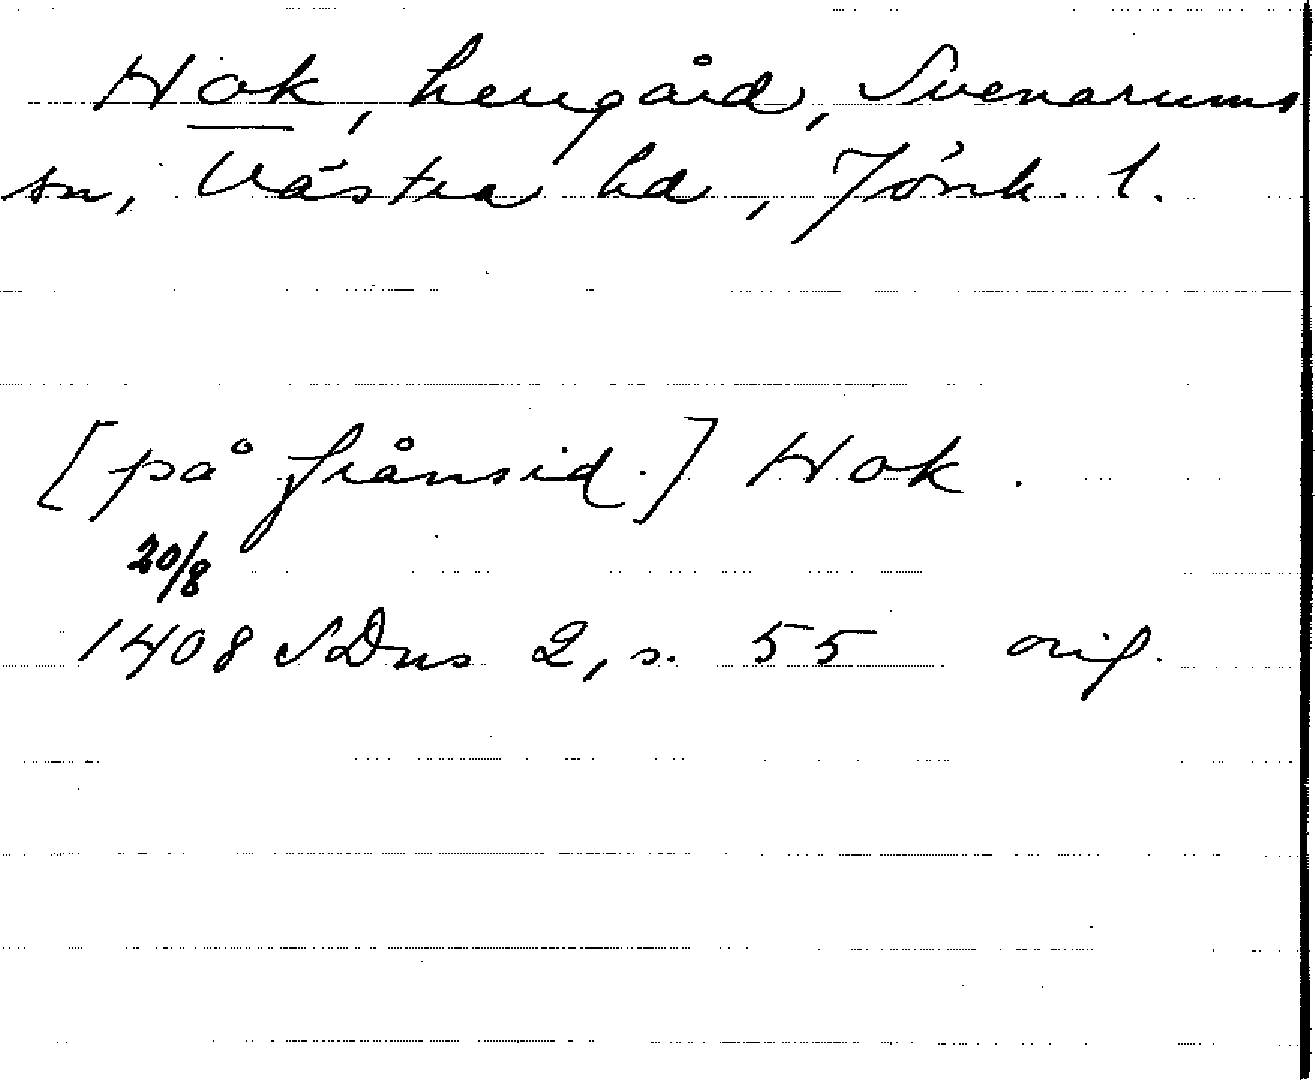 Hok, herrgård, Svenarums
sn, Västra hd, Jönk. l.
[på frånsid.] Hok.
20/8
1408 SDns 2, s. 55 orig.